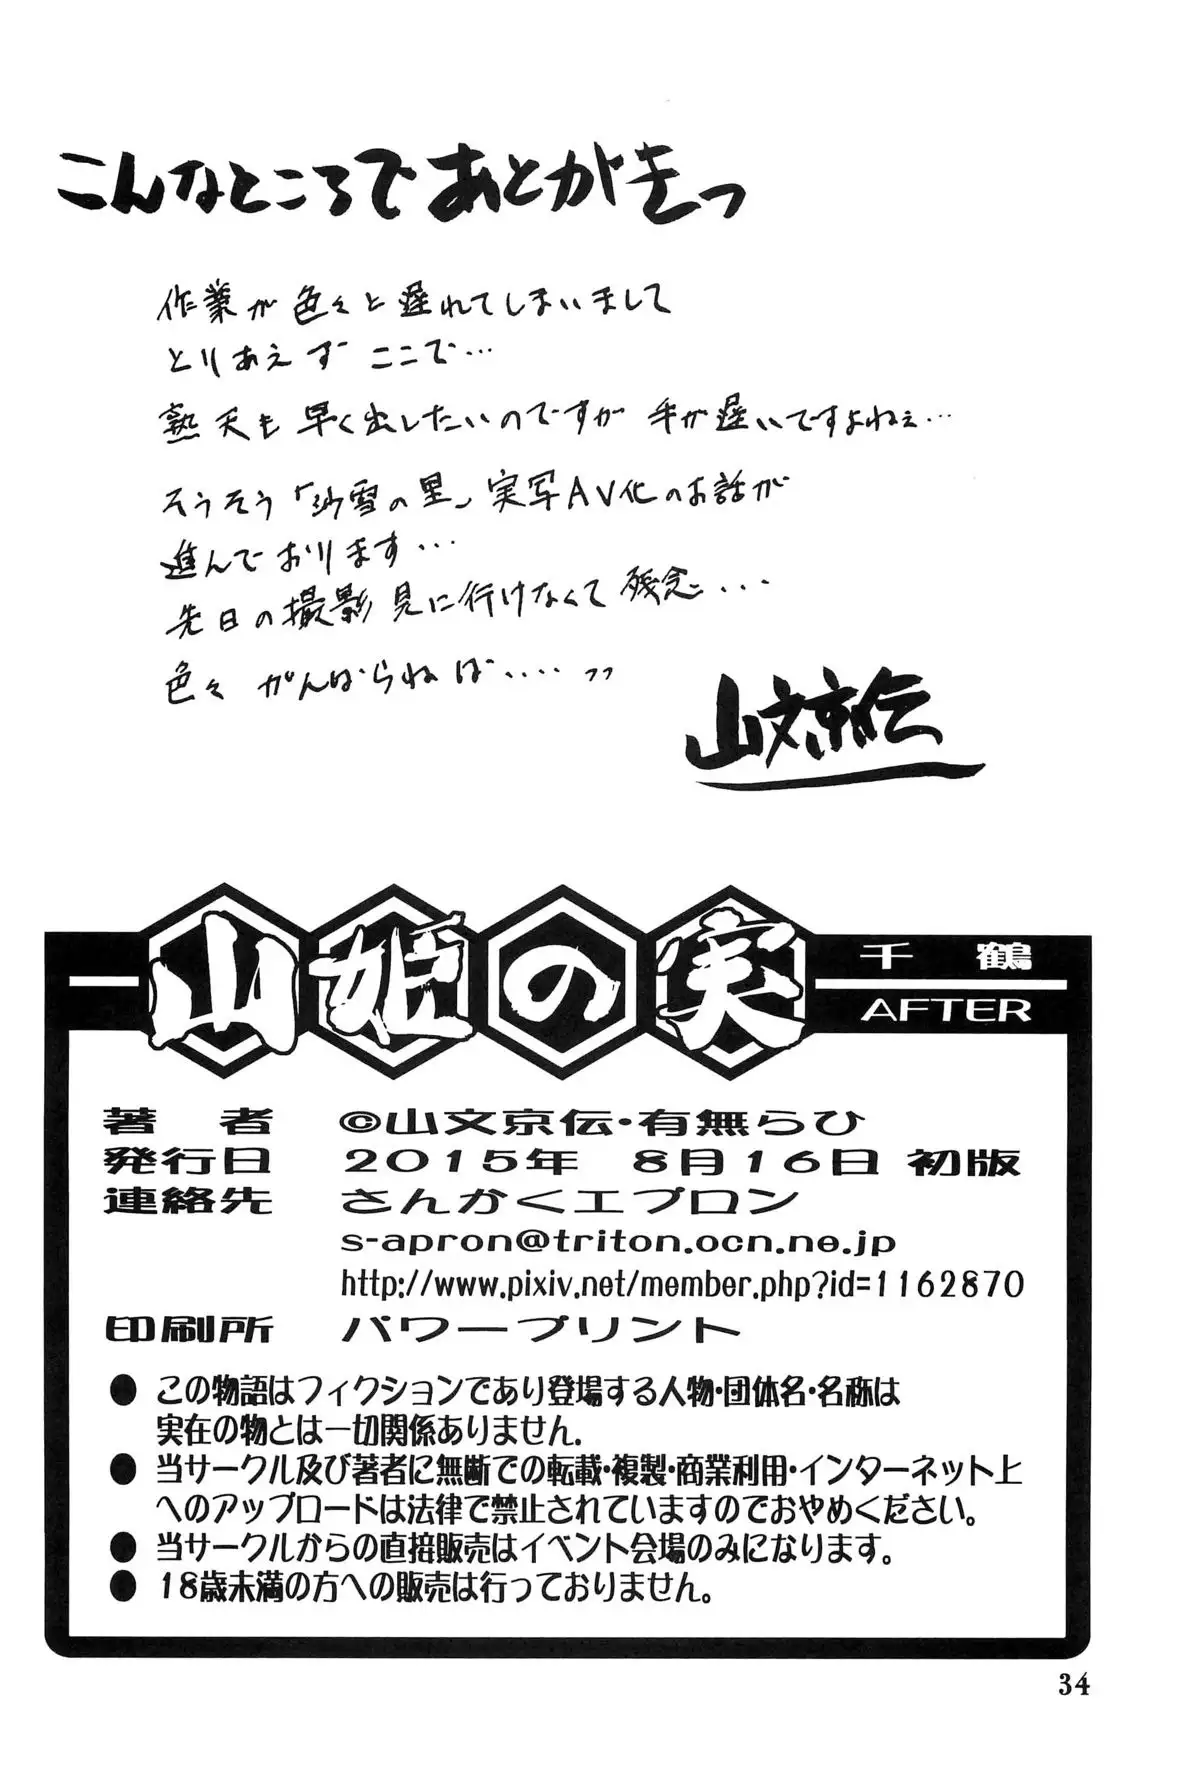 こんなところであとがきっ
作業が色々と遅れてしまいまして
とりあえず ここで…
熟天も早く出したいのですが 手が遅いですよねぇ…
そうそう「沙雪の里」実写AV化のお話が
進んでおります…
先日の撮影見に行けなくて残念…
色々 がんばらねば....っっ
山文京伝
山姫の実
千鶴
AFTER
著者 ©山文京伝・有無らひ
発行日 2015年 8月16日 初版
連絡先 さんかくエプロン
s-apron@triton.ocn.ne.jp
http://www.pixiv.net/member.php?id=1162870
印刷所 パワープリント
● この物語はフィクションであり登場する人物・団体名・名称は
実在の物とは一切関係ありません.
● 当サークル及び著者に無断での転載・複製・商業利用・インターネット上
へのアップロードは法律で禁止されていますのでおやめください。
● 当サークルからの直接販売はイベント会場のみになります。
● 18歳未満の方への販売は行っておりません。
34